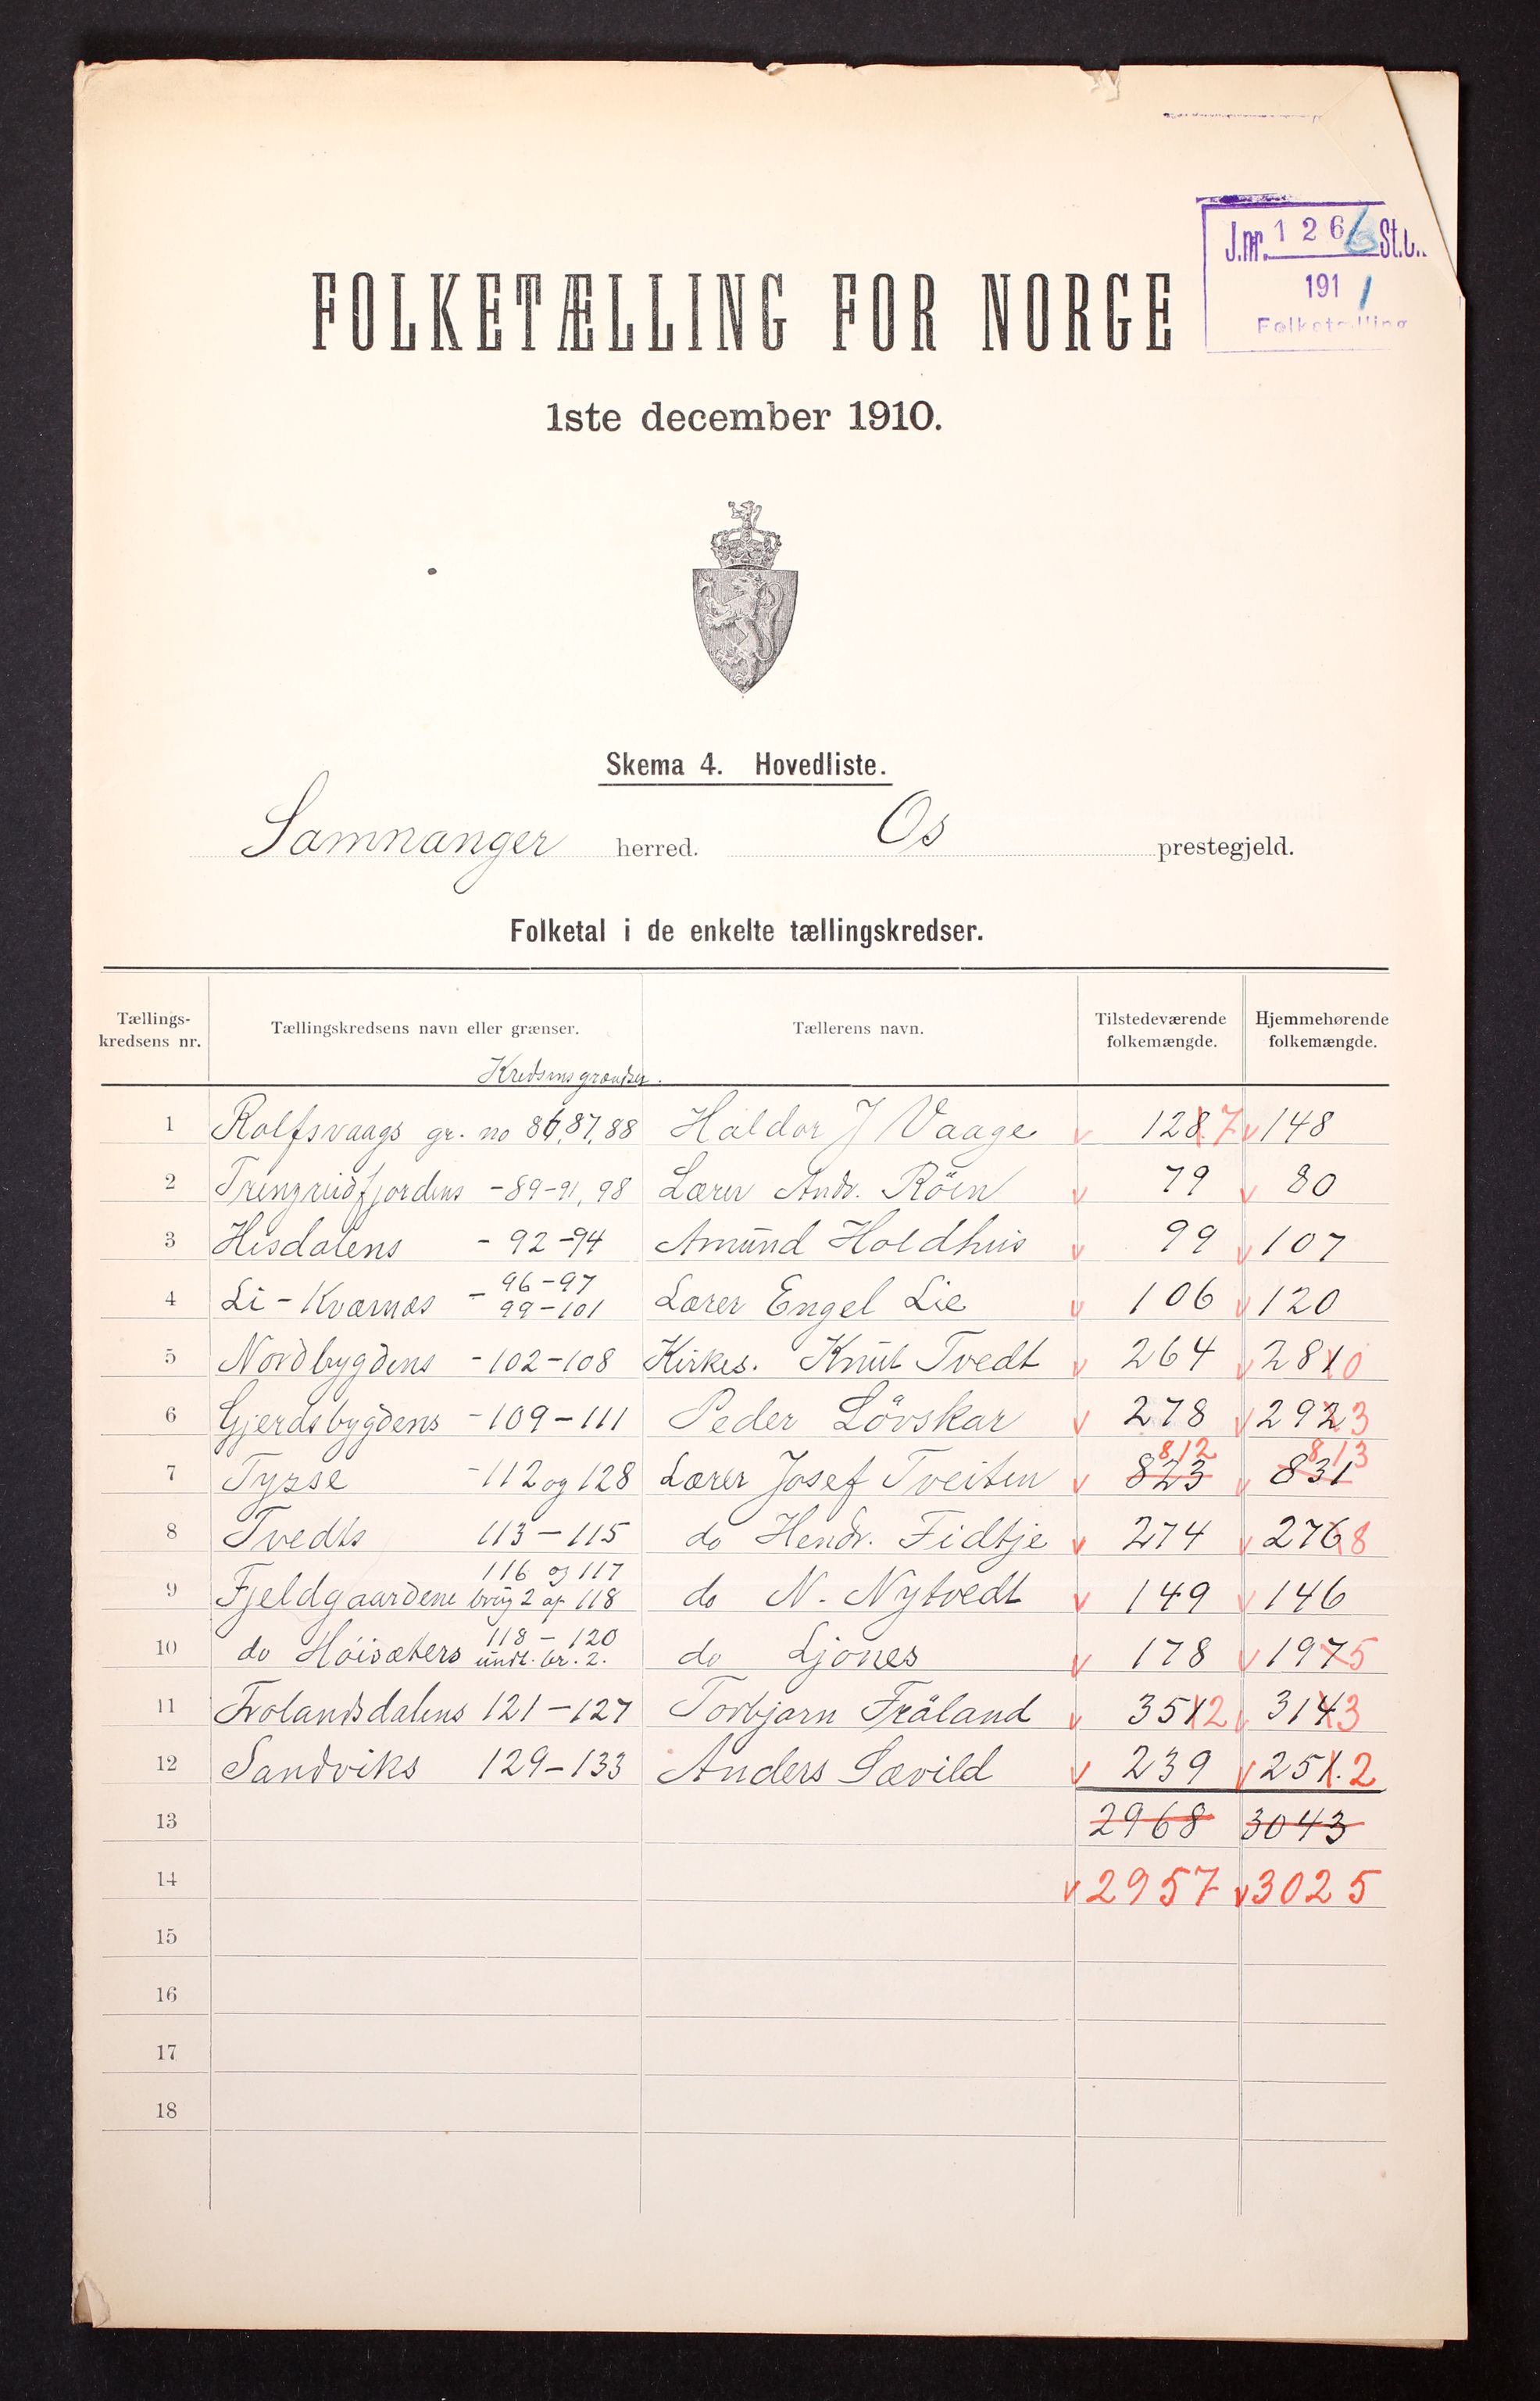 J.nr. 1266 St.c.
1911
Folketælling
FOLKETÆLLING FOR NORGE
1ste december 1910.
Skema 4. Hovedliste.
Samnanger herred. Os prestegjeld.
Folketal i de enkelte tællingskredser.
Tællings-kredsens nr. Tællingskredsens navn eller grænser. Tællerens navn. Tilstedeværende folkemængde. Hjemmehørende folkemængde.
Kredsens grændser.
1 Rolfsvaags gr. no 86, 87, 88 Haldor J Vaage 128 7 148
2 Trengreidfjordens - 89-91, 98 Lærer Andr. Röen 79 80
3 Hisdalens - 92-94 Amund Holdhus 99 107
4 Li-Kvernes - 96-97 99-101 Lærer Engel Lie 106 120
5 Nordbygdens - 102-108 Kirkes. Knut Tvedt 264 281 0
6 Gjerdsbygdens - 109-111 Peder Lövskar 278 292 3
7 Tysse - 112 og 128 Lærer Josef Tveiten 823 812 831 813
8 Tvedts 113-115 do Hendr. Fidtje 274 276 8
9 Fjeldgaardene 116 og 117 brug 2 af 118 do N. Nytvedt 149 146
10 do Höisæters 118-120 undt. br. 2. do Ljones 178 197 5
11 Frolandsdalens 121-127 Torbjørn Fråland 351 2 314 3
12 Sandviks 129-133 Anders Sævild 239 251. 2
13 2968 3043
14 2957 3025
15
16
17
18